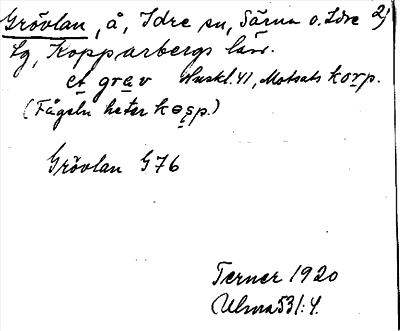 Grövlan, å, Idre sn, Särna o. Idre 2)
Lg, Kopparbergs län.
et grav Huskl. 41, Motsats korp.
(Fågeln heter kosp.)
Grövlan G76
Terner 1920
Ulma 531:4.